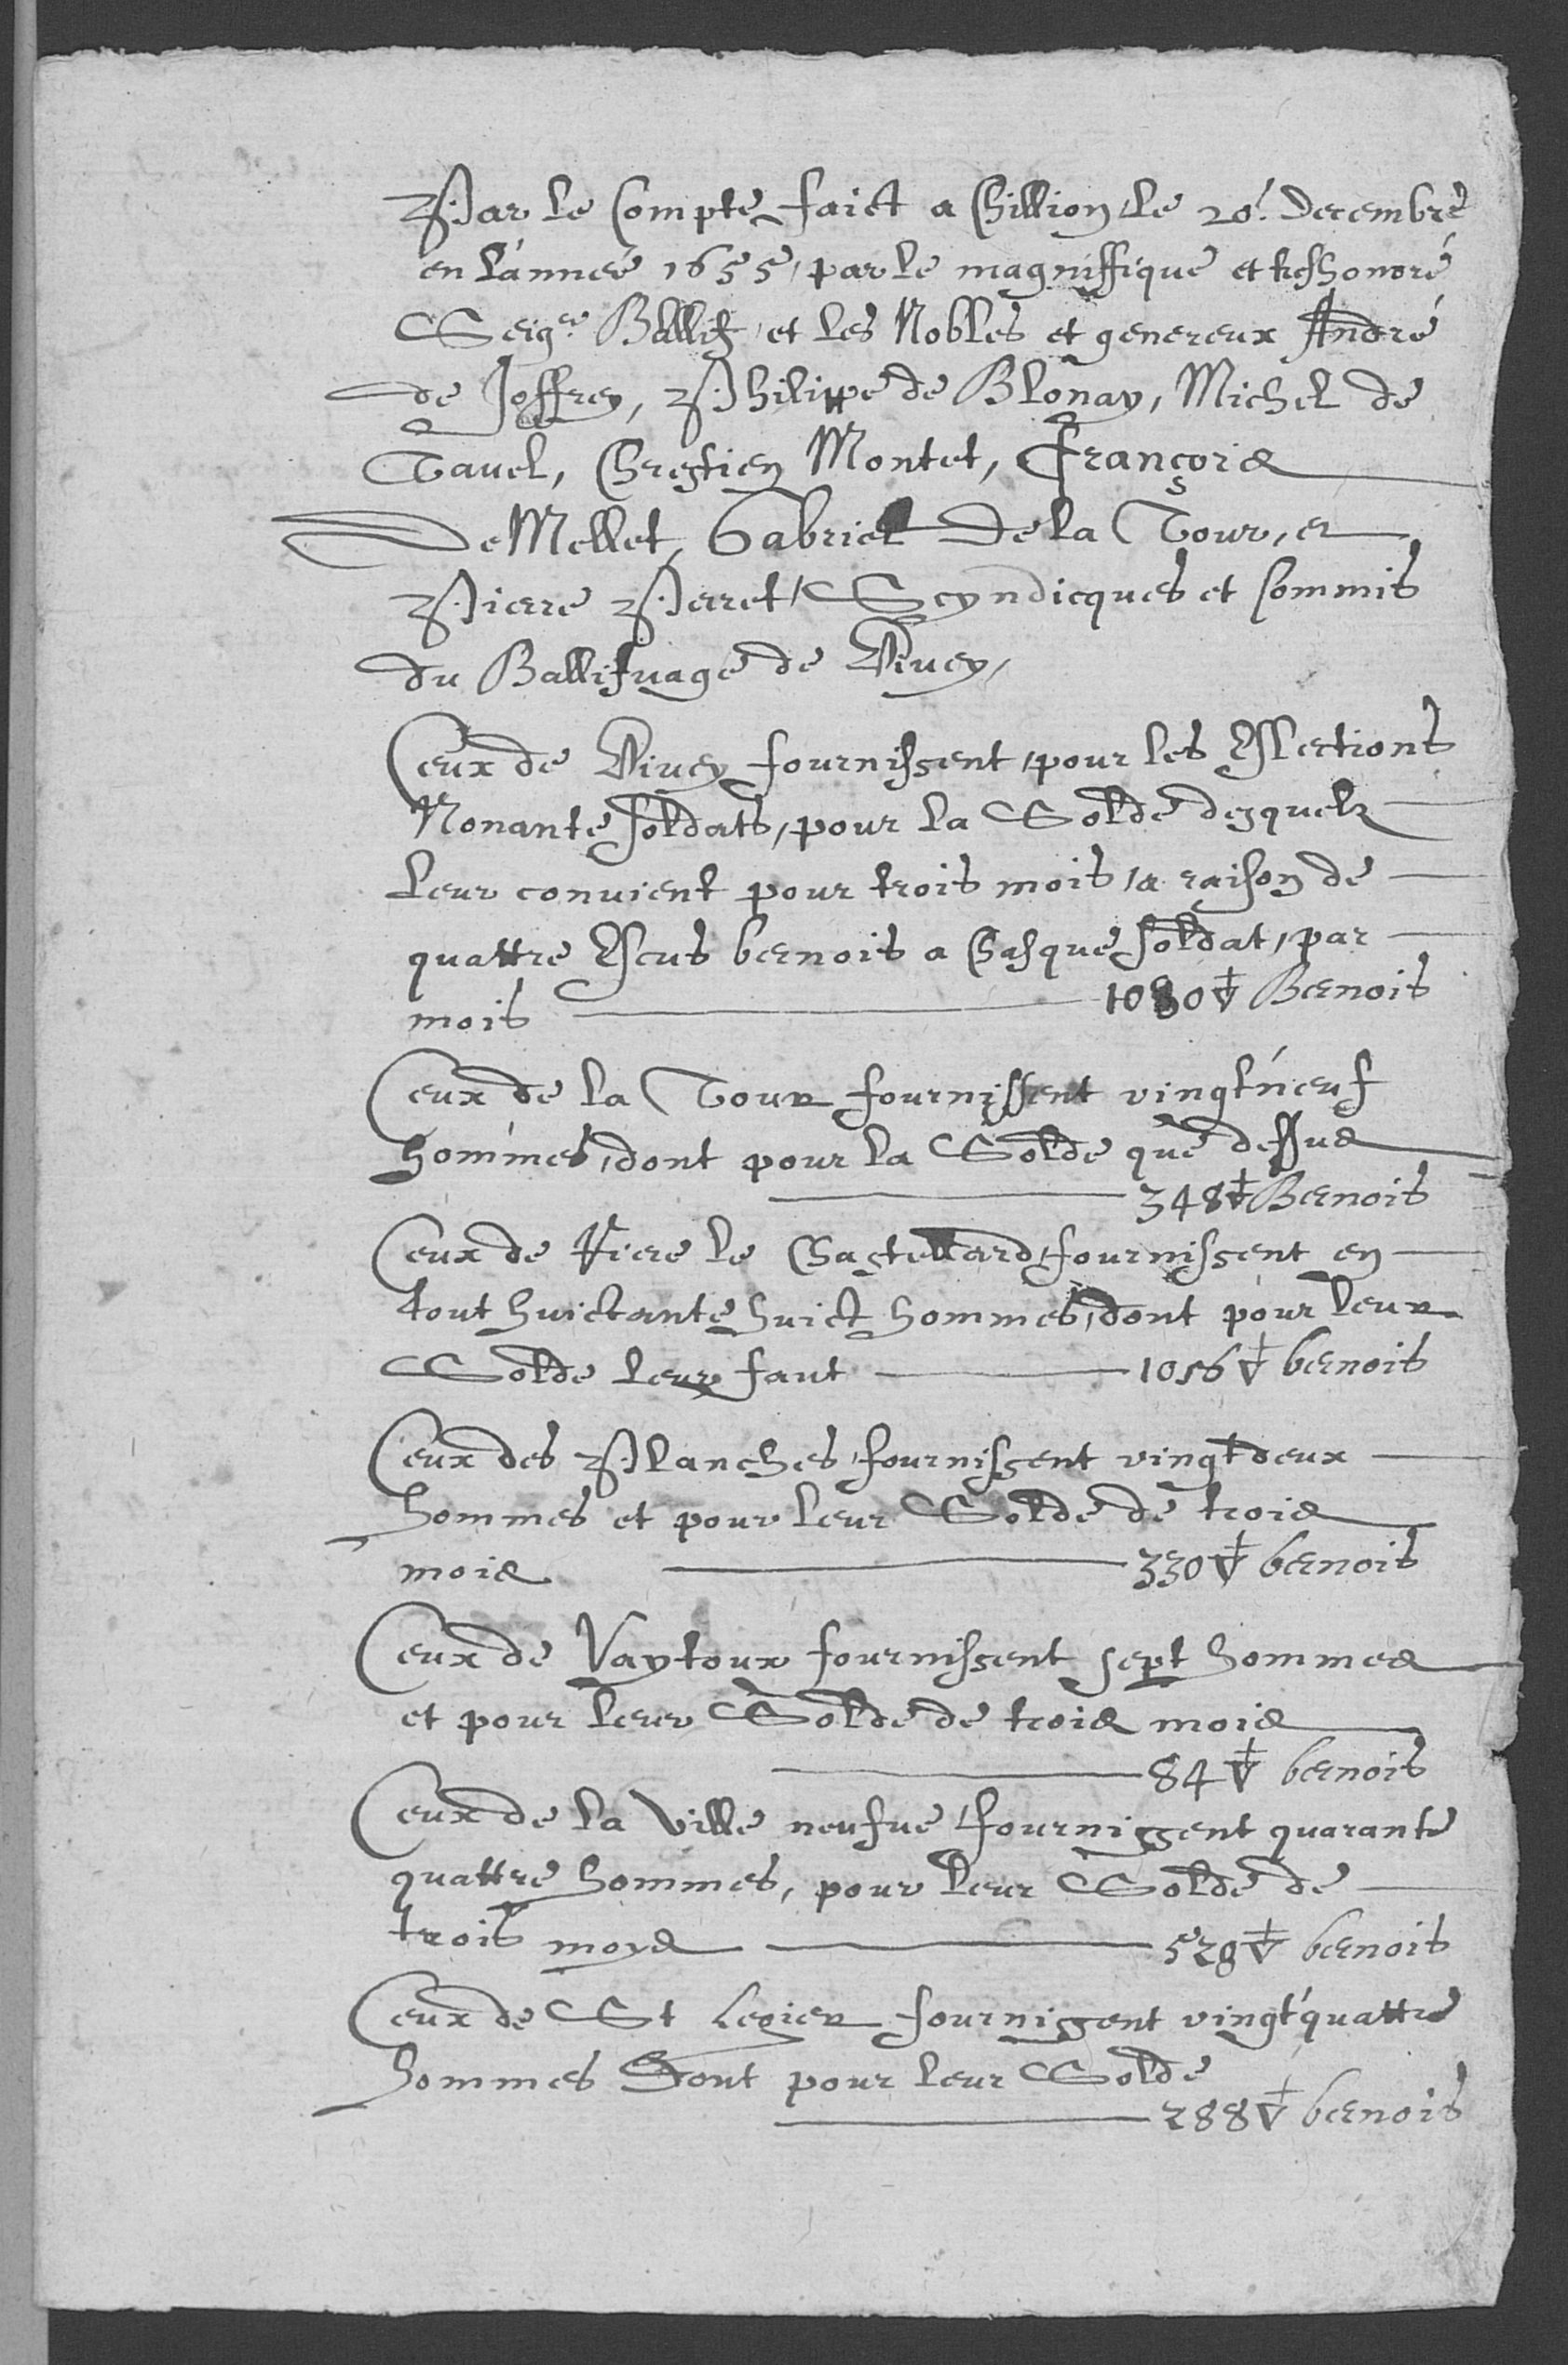 Par le Compte faict a Chillion le 20.e Decembre
en l'anneé 1655, par le magniffique et treshonoré
Seig.r Ballif, et les Nobles et genereux André
de Joffrey, Philippe de Blonay, Michel de
Tauel, Chrestien Montet, François
De Mellet, Gabriel De la Tour, et
Pierre Perret, Scyndicques et Commis
du Ballifuage de Viuey,
Ceux de Viuey fournissent, pour les Eslections
Nonante soldats, pour la Solde desquelz
leur conuient pour trois mois, a raison de
quattre Escus bernois a Chasque soldat, par
mois 1080 ▽ Bernois
Ceux de la Tour fournissent vingt'neuf
hommes, dont pour la Solde que dessus
348 ▽ Bernois
Ceux de Riere le Chastellard, fournissent en
tout huictante huict hommes, dont pour leur
Solde leur faut 1056 ▽ bernois
Ceux des Planches, fournissent vingtdeux
hommes et pour leur Solde de trois
mois 330 ▽ bernois
Ceux de Vaytoux fournissent sept hommes
et pour leur Solde de trois mois
84 ▽ bernois
Ceux de la Ville neufue, fournissent quarante
quattre hommes, pour leur Solde de
trois moys 528 ▽ bernois
Ceux de St Legier fournissent vingt'quattre
hommes Dont pour leur Solde
288 ▽ bernois